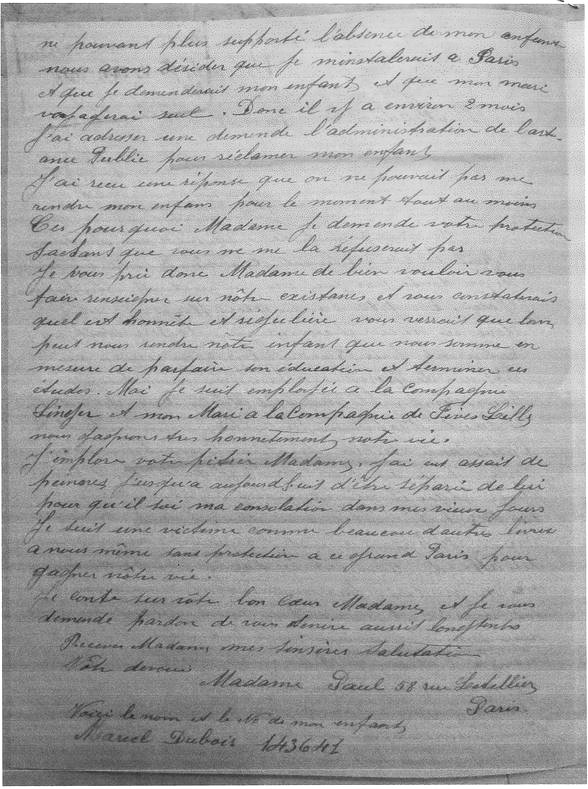 ne pouvant plus supporté l'absence de mon enfans
nous avons décider que je m'instalerait a Paris
et que je demenderait mon enfant, et que mon mari
voyagerai seul. Donc il y a environ 2 mois
J'ai adresser une demende l'administration de l'assi-
tance Publie pour réclamer mon enfant,
J'ai recu une réponse que on ne pouvait pas me
rendre mon enfans pour le moment tout au moins
Ces pourquoi Madame je demende votre protection
sachant que vous ne me la refuserait pas
Je vous prie donc Madame de bien vouloir vous
faire renseigner sur nôtre existance et vous constaterais
quel est honnête et régulière vous verrait que l'on
peut nous rendre nôtre enfant que nous somme en
mesure de parfaire son éducation et terminer ces
études. Moi je suit emploiée a la Compagnie
Singer et mon Mari a la Compagnie de Fives Lille
nous gagnons très honnetement notre vie.
J'implore votre pitiée Madame, j'ai eut assait de
peine jusqu'a aujourd'huit d'être séparée de lui
pour qu'il soi ma consolation dans mes vieux jours
Je suit une victime comme beaucou d'autre livrée
a nous même sans protection a ce grand Paris pour
gagner nôtre vie.
Je conte sur vôtre bon Cœur Madame, et je vous
demende pardon de vous écrire aussit longtenbs
Recever Madame mes sinsères salutation
Vôtre devouée
Madame Paul 58 rue Letellier,
Paris
Voiçi le nom et le No de mon enfant,
Marcel Dubois 143641